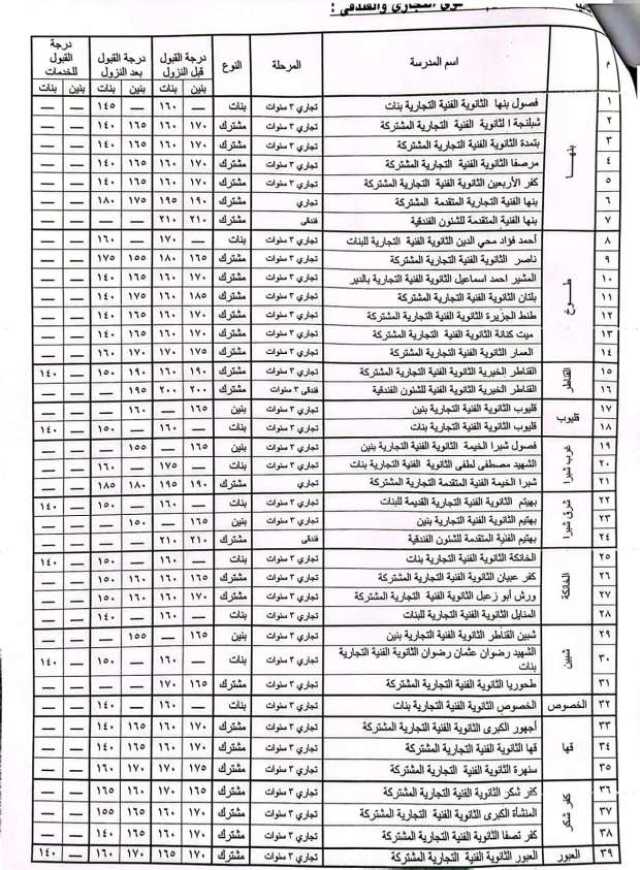 التجاري والفندقي :
م | اسم المدرسة | المرحلة | النوع | درجة القبول قبل النزول | درجة القبول بعد النزول | درجة القبول للخدمات
بنين | بنات | بنين | بنات | بنين | بنات
بنهـــا
١ | فصول بنها الثانوية الفنية التجارية بنات | تجاري ٣ سنوات | بنات | — | ١٦٠ | — | ١٤٥ | — | —
٢ | شبلنجة الثانوية الفنية التجارية المشتركة | تجاري ٣ سنوات | مشترك | ١٧٠ | ١٦٠ | ١٦٥ | ١٤٠ | — | —
٣ | بتمدة الثانوية الفنية التجارية المشتركة | تجاري ٣ سنوات | مشترك | ١٧٠ | ١٦٠ | ١٦٥ | ١٤٠ | — | —
٤ | مرصفا الثانوية الفنية التجارية المشتركة | تجاري ٣ سنوات | مشترك | ١٧٠ | ١٦٠ | ١٦٥ | ١٤٠ | — | —
٥ | كفر الأربعين الثانوية الفنية التجارية المشتركة | تجاري ٣ سنوات | مشترك | ١٧٠ | ١٦٠ | ١٦٥ | ١٤٠ | — | —
٦ | بنها الفنية التجارية المتقدمة المشتركة | تجاري | مشترك | ١٩٠ | ١٩٥ | ١٧٥ | ١٨٠ | — | —
٧ | بنها الفنية المتقدمة للشئون الفندقية | فندقى | مشترك | ٢١٠ | ٢١٠ | — | — | — | —
طـــوخ
٨ | أحمد فؤاد محي الدين الثانوية الفنية التجارية للبنات | تجاري ٣ سنوات | بنات | — | ١٧٠ | — | ١٦٠ | — | —
٩ | ناصر الثانوية الفنية التجارية المشتركة | تجاري ٣ سنوات | مشترك | ١٦٥ | ١٨٠ | ١٥٥ | ١٧٥ | — | —
١٠ | المشير احمد اسماعيل الثانوية الفنية التجارية بالدير | تجاري ٣ سنوات | مشترك | ١٧٠ | ١٦٠ | ١٦٥ | ١٤٠ | — | —
١١ | بلتان الثانوية الفنية التجارية المشتركة | تجاري ٣ سنوات | مشترك | ١٨٥ | ١٦٠ | ١٧٥ | ١٤٠ | — | —
١٢ | طنط الجزيرة الثانوية الفنية التجارية المشتركة | تجاري ٣ سنوات | مشترك | ١٧٠ | ١٦٠ | ١٦٥ | ١٤٠ | — | —
١٣ | ميت كنانة الثانوية الفنية التجارية المشتركة | تجاري ٣ سنوات | مشترك | ١٧٠ | ١٦٠ | ١٦٥ | ١٤٠ | — | —
١٤ | العمار الثانوية الفنية التجارية المشتركة | تجاري ٣ سنوات | مشترك | ١٧٥ | ١٧٠ | ١٧٠ | ١٦٠ | — | —
القناطر
١٥ | القناطر الخيرية الثانوية الفنية التجارية المشتركة | تجاري ٣ سنوات | مشترك | ١٩٠ | ١٦٠ | ١٩٠ | ١٥٠ | — | ١٤٠
١٦ | القناطر الخيرية الثانوية الفنية للشئون الفندقية | فندقى ٣ سنوات | مشترك | ٢٠٠ | ٢٠٠ | ١٩٥ | — | — | —
قليوب
١٧ | قليوب الثانوية الفنية التجارية بنين | تجاري ٣ سنوات | بنين | ١٦٥ | — | ١٦٠ | — | — | —
١٨ | قليوب الثانوية الفنية التجارية بنات | تجاري ٣ سنوات | بنات | — | ١٦٠ | — | ١٥٠ | — | ١٤٠
غرب شبرا
١٩ | فصول شبرا الخيمة الثانوية الفنية التجارية بنين | تجاري ٣ سنوات | بنين | ١٦٥ | — | ١٥٥ | — | — | —
٢٠ | الشهيد مصطفى لطفى الثانوية الفنية التجارية بنات | تجاري ٣ سنوات | بنات | — | ١٧٥ | — | ١٦٠ | — | —
٢١ | شبرا الخيمة الفنية المتقدمة التجارية المشتركة | تجاري | مشترك | ١٩٠ | ١٩٥ | ١٨٠ | ١٨٥ | — | —
شرق شبرا
٢٢ | بهتيم الثانوية الفنية التجارية القديمة للبنات | تجاري ٣ سنوات | بنات | — | ١٦٠ | — | ١٥٠ | — | ١٤٠
٢٣ | بهتيم الثانوية الفنية التجارية بنين | تجاري ٣ سنوات | بنين | ١٦٥ | — | ١٥٠ | — | — | —
٢٤ | بهتيم الفنية المتقدمة للشئون الفندقية | فندقى | مشترك | ٢١٠ | ٢١٠ | — | — | — | —
الخانكة
٢٥ | الخانكة الثانوية الفنية التجارية بنات | تجاري ٣ سنوات | بنات | — | ١٦٠ | — | ١٥٠ | — | ١٤٠
٢٦ | كفر عبيان الثانوية الفنية التجارية المشتركة | تجاري ٣ سنوات | مشترك | ١٦٥ | ١٦٠ | ١٦٠ | ١٥٠ | — | —
٢٧ | ورش أبو زعبل الثانوية الفنية التجارية المشتركة | تجاري ٣ سنوات | مشترك | ١٧٠ | ١٦٠ | ١٦٥ | ١٥٠ | — | —
٢٨ | المنايل الثانوية الفنية التجارية للبنات | تجاري ٣ سنوات | بنات | — | ١٦٠ | — | ١٤٠ | — | —
شبين
٢٩ | شبين القناطر الثانوية الفنية التجارية بنين | تجاري ٣ سنوات | بنين | ١٦٥ | — | ١٥٥ | — | — | —
٣٠ | الشهيد رضوان عثمان رضوان الثانوية الفنية التجارية بنات | تجاري ٣ سنوات | بنات | — | ١٦٠ | — | ١٥٠ | — | ١٤٠
٣١ | طحوريا الثانوية الفنية التجارية المشتركة | تجاري ٣ سنوات | مشترك | ١٦٥ | ١٧٠ | — | — | — | —
الخصوص
٣٢ | الخصوص الثانوية الفنية التجارية بنات | تجاري ٣ سنوات | بنات | — | ١٦٠ | — | ١٤٠ | — | —
قها
٣٣ | أجهور الكبرى الثانوية الفنية التجارية المشتركة | تجاري ٣ سنوات | مشترك | ١٧٠ | ١٦٠ | ١٦٥ | ١٤٠ | — | —
٣٤ | قها الثانوية الفنية التجارية المشتركة | تجاري ٣ سنوات | مشترك | ١٧٠ | ١٦٠ | ١٦٥ | ١٤٠ | — | —
٣٥ | سنهرة الثانوية الفنية التجارية المشتركة | تجاري ٣ سنوات | مشترك | ١٧٥ | ١٧٠ | ١٧٠ | ١٦٠ | — | —
كفر شكر
٣٦ | كفر شكر الثانوية الفنية التجارية المشتركة | تجاري ٣ سنوات | مشترك | ١٦٥ | ١٧٠ | ١٦٠ | ١٦٥ | — | —
٣٧ | المنشأة الكبرى الثانوية الفنية التجارية المشتركة | تجاري ٣ سنوات | مشترك | ١٧٠ | ١٦٠ | ١٦٥ | ١٥٥ | — | —
٣٨ | كفر تصفا الثانوية الفنية التجارية المشتركة | تجاري ٣ سنوات | مشترك | ١٧٠ | ١٦٠ | ١٦٥ | ١٤٠ | — | —
العبور
٣٩ | العبور الثانوية الفنية التجارية المشتركة | تجاري ٣ سنوات | مشترك | ١٧٠ | ١٦٥ | ١٧٠ | ١٦٠ | — | ١٤٠